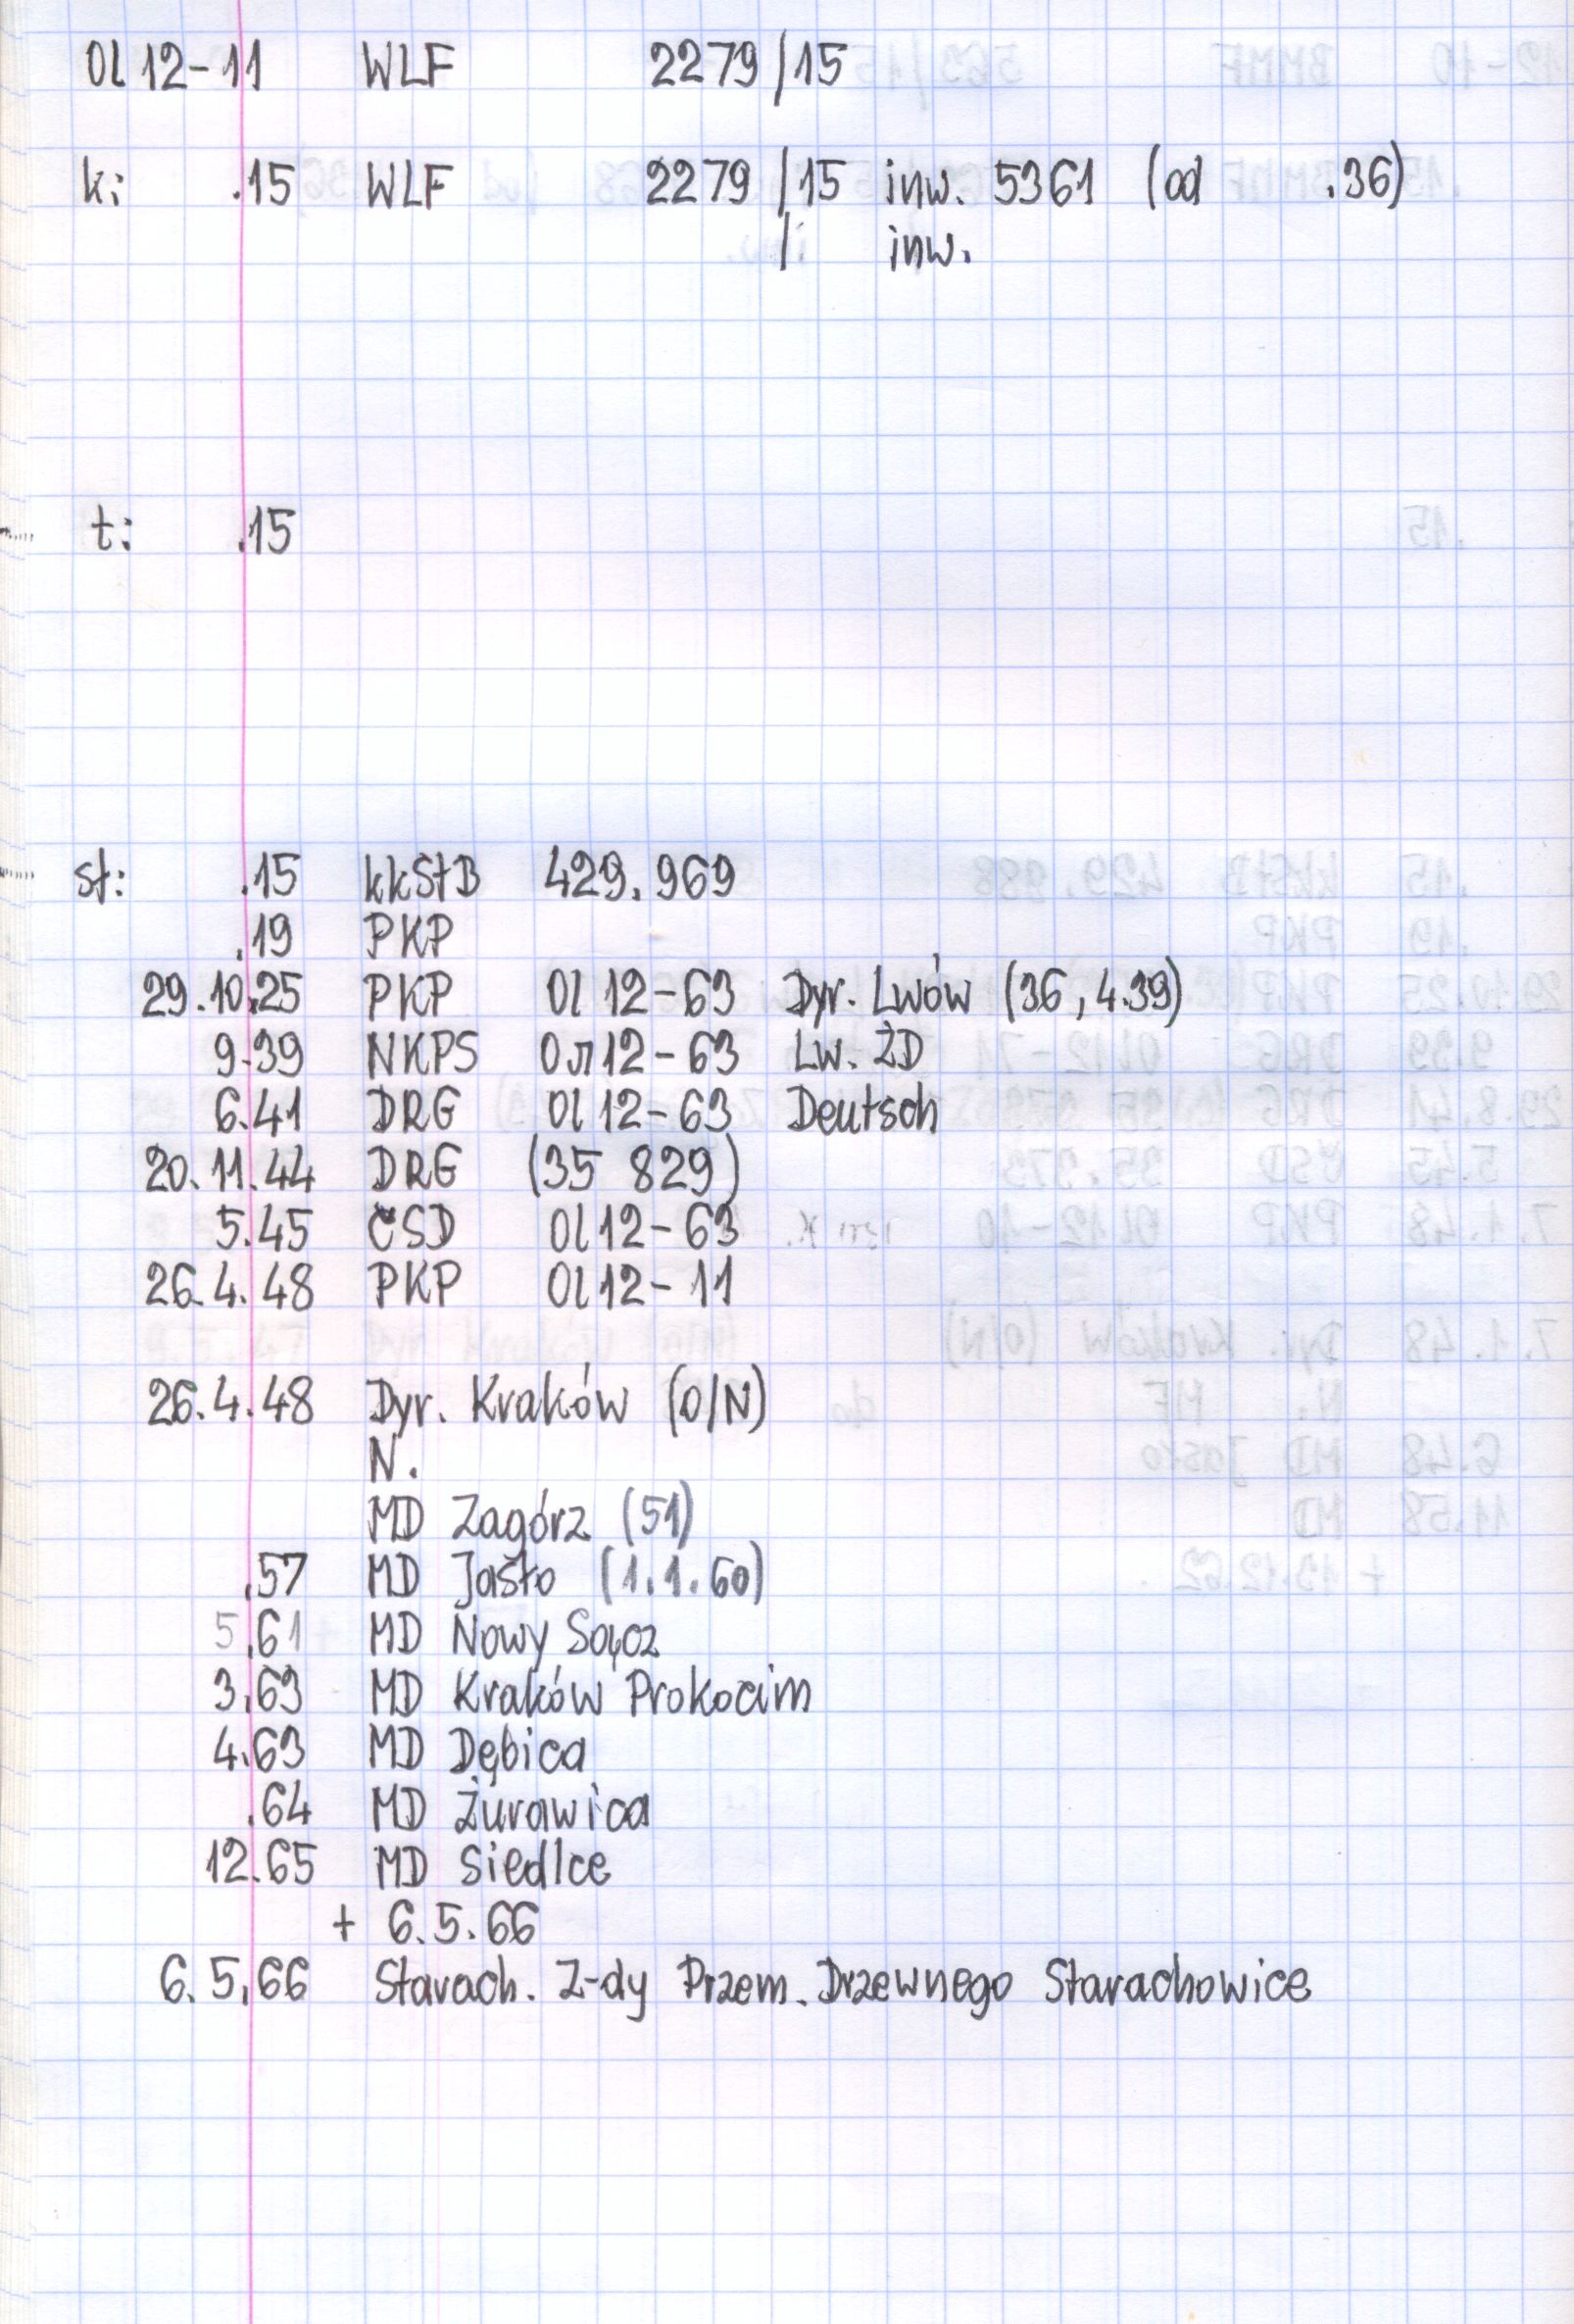 Ol 12-11 WLF 2279/15
k: .15 WLF 2279/15 inw. 5361 (od .36)
/ inw.
t: .15
st: .15 kkStB 429.969
.19 PKP
29.10.25 PKP Ol 12-63 Dyr. Lwów (36, 4.39)
9.39 NKPS Ол 12-63 Lw. ŻD
6.41 DRG Ol 12-63 Deutsch
20.11.44 DRG (35 829)
5.45 ČSD Ol 12-63
26.4.48 PKP Ol 12-11
26.4.48 Dyr. Kraków (O/N)
N.
MD Zagórz (51)
.57 MD Jasło (1.1.60)
5.61 MD Nowy Sącz
3.63 MD Kraków Prokocim
4.63 MD Dębica
.64 MD Żurawica
12.65 MD Siedlce
+ 6.5.66
6.5.66 Starach. Z-dy Przem. Drzewnego Starachowice